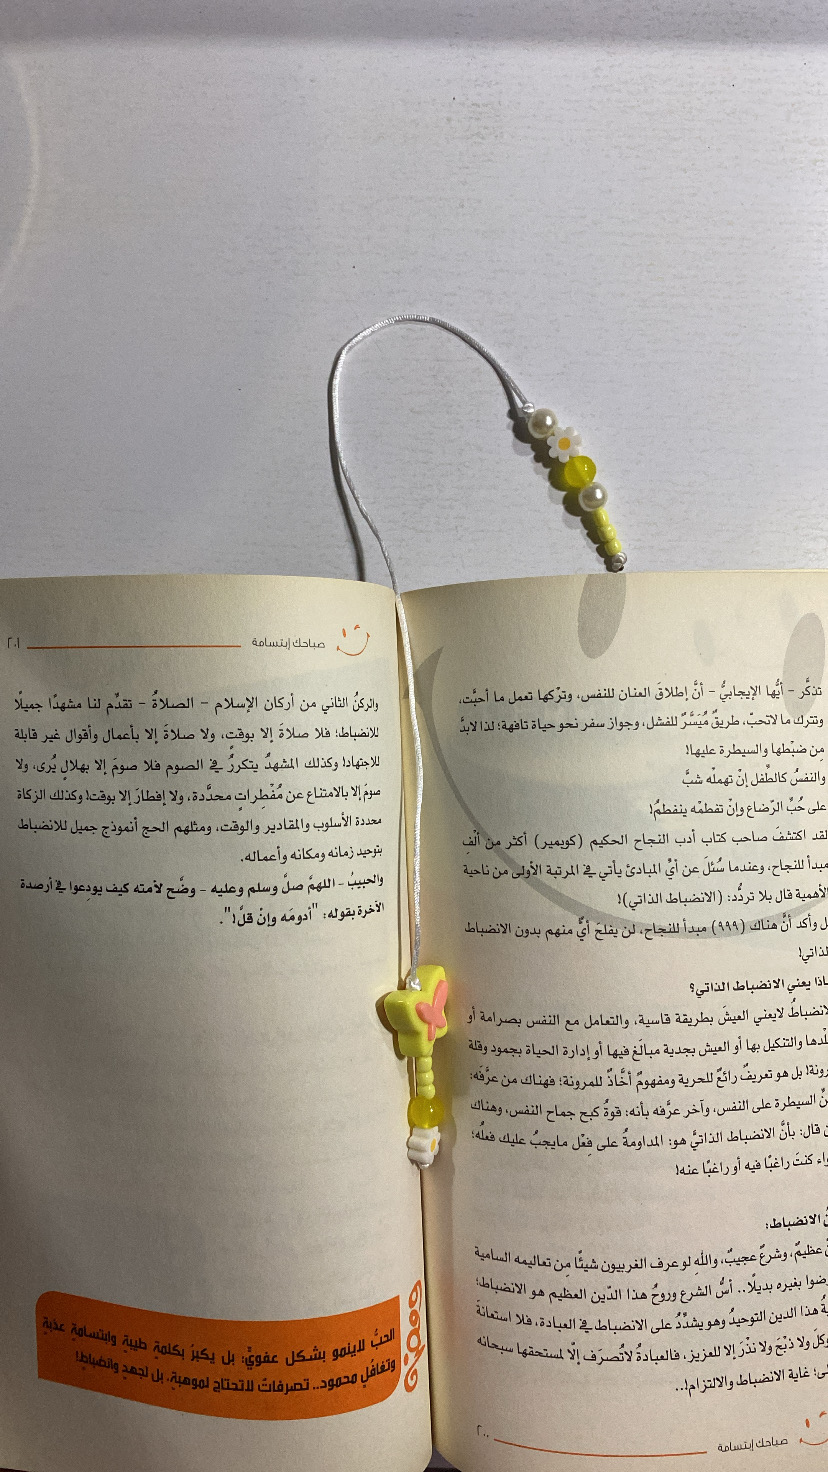 تذكَّر - أيُّها الإيجابيُّ - أنَّ إطلاقَ العنان للنفس، وتركها تعمل ما أحبَّت،
وتترك ما لاتحبّ، طريقٌ مُيَسَّرٌ للفشل، وجواز سفر نحو حياة تافهة؛ لذا لابدَّ
مِن ضبْطها والسيطرة عليها!
والنفسُ كالطِّفل إنْ تهملْه شبَّ
على حُبِّ الرّضاع وإنْ تفطمْه ينفطمُ!
لقد اكتشفَ صاحب كتاب أدب النجاح الحكيم (كوبمير) أكثر من ألْف
مبدأ للنجاح، وعندما سُئلَ عن أيِّ المبادئ يأتي في المرتبة الأولى من ناحية
الأهمية قال بلا تردُّد: (الانضباط الذاتي)!
وأكد أنَّ هناك (٩٩٩) مبدأ للنجاح، لن يفلحَ أيٌّ منهم بدون الانضباط
الذاتي!
ماذا يعني الانضباط الذاتي؟
الانضباطُ لايعني العيشَ بطريقة قاسية، والتعامل مع النفس بصرامة أو
والتنكيل بها أو العيش بجدية مبالَغ فيها أو إدارة الحياة بجمود وقلة
مرونة! بل هو تعريفٌ رائعٌ للحرية ومفهومٌ أخَّاذٌ للمرونة؛ فهناك من عرَّفَه:
السيطرة على النفس، وآخر عرَّفه بأنه: قوةُ كبح جماح النفس، وهناك
قال: بأنَّ الانضباط الذاتيَّ هو: المداومةُ على فِعْل مايجبُ عليك فعلُه؛
سواء كنتَ راغبًا فيه أو راغبًا عنه!
الانضباط:
عظيمٌ، وشرعٌ عجيبٌ، واللهِ لو عرف الغربيون شيئًا مِن تعاليمه السامية
بغيره بديلًا.. أسُّ الشرع وروحُ هذا الدّين العظيم هو الانضباط؛
هذا الدين التوحيدُ وهو يشدِّدُ على الانضباط في العبادة، فلا استعانةَ
ولا ذبْحَ ولا نذْرَ إلا للعزيز، فالعبادةُ لاتُصرَف إلّا لمستحقها سبحانه
غاية الانضباط والالتزام!..
صباحك إبتسامة
٢٠٠
صباحك إبتسامة
٢٠١
والركنُ الثاني من أركان الإسلام - الصلاةُ - تقدِّم لنا مشهدًا جميلًا
للانضباط؛ فلا صلاةَ إلا بوقتٍ، ولا صلاةَ إلا بأعمال وأقوال غير قابلة
للاجتهاد! وكذلك المشهدُ يتكررُ في الصوم فلا صومَ إلا بهلالٍ يُرى، ولا
صومَ إلا بالامتناع عن مُفْطِراتٍ محدَّدة، ولا إفطارَ إلا بوقت! وكذلك الزكاة
محددة الأسلوب والمقادير والوقت، ومثلهم الحج أنموذج جميل للانضباط
بتوحيد زمانه ومكانه وأعماله.
والحبيبُ - اللهمَّ صلَّ وسلم وعليه - وضَّح لأمته كيف يودِعوا في أرصدة
الآخرة بقوله: "أدومَه وإنْ قلَّ!".
ومضة
الحبُّ لاينمو بشكل عفويٍّ؛ بل يكبرُ بكلمةٍ طيبةٍ وابتسامةٍ عذبةٍ
وتغافُلٍ محمود.. تصرفاتٌ لاتحتاج لموهبةٍ، بل لجهدٍ وانضباط!